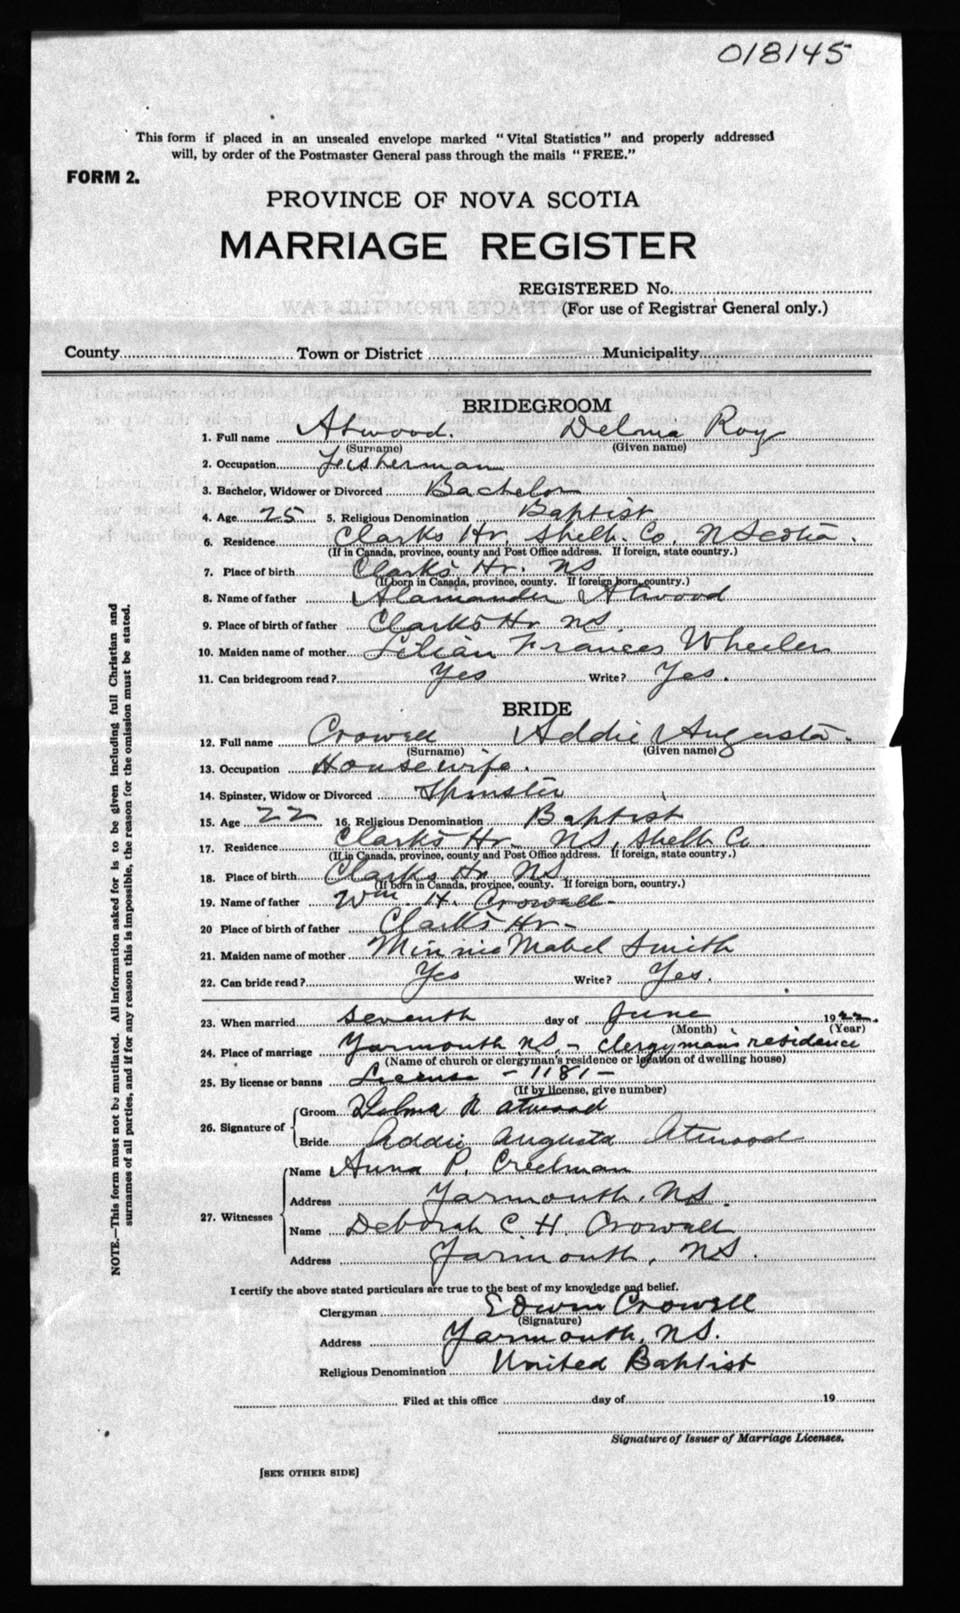 018145
This form if placed in an unsealed envelope marked "Vital Statistics" and properly addressed
will, by order of the Postmaster General pass through the mails "FREE."
FORM 2.
PROVINCE OF NOVA SCOTIA
MARRIAGE REGISTER
REGISTERED No.
(For use of Registrar General only.)
County Town or District Municipality
BRIDEGROOM
1. Full name Atwood. Delma Roy
(Surname) (Given name)
2. Occupation Fisherman
3. Bachelor, Widower or Divorced Bachelor
4. Age 25 5. Religious Denomination Baptist
6. Residence Clarks Hr, Shelb. Co. N Scotia.
(If in Canada, province, county and Post Office address. If foreign, state country.)
7. Place of birth Clark's Hr. NS
(If born in Canada, province, county. If foreign born, country.)
8. Name of father Alamander Atwood
9. Place of birth of father Clark's Hr NS.
10. Maiden name of mother Lilian Frances Wheeler
11. Can bridegroom read? Yes Write? Yes.
BRIDE
12. Full name Crowell Addie Augusta.
(Surname) (Given name)
13. Occupation Housewife.
14. Spinster, Widow or Divorced Spinster
15. Age 22 16. Religious Denomination Baptist
17. Residence Clark's Hr- NS, Shelb Co.
(If in Canada, province, county and Post Office address. If foreign, state country.)
18. Place of birth Clarks Hr NS
(If born in Canada, province, county. If foreign born, country.)
19. Name of father Wm. H. Crowell-
20 Place of birth of father Clark's Hr-
21. Maiden name of mother Minnie Mabel Smith
22. Can bride read? Yes Write? Yes.
23. When married seventh day of June 1922.
(Month) (Year)
24. Place of marriage Yarmouth NS.- Clergyman's residence
(Name of church or clergyman's residence or location of dwelling house)
25. By license or banns License - 1181 -
(If by license, give number)
26. Signature of
Groom Delma R Atwood
Bride Addie Augusta Atwood
27. Witnesses
Name Anna P. Creelman
Address Yarmouth, NS.
Name Deborah C. H. Crowell
Address Yarmouth, NS.
I certify the above stated particulars are true to the best of my knowledge and belief.
Clergyman Edwin Crowell
(Signature)
Address Yarmouth, NS.
Religious Denomination United Baptist
Filed at this office day of 19
Signature of Issuer of Marriage Licenses.
[SEE OTHER SIDE]
NOTE.—This form must not be mutilated. All information asked for is to be given including full Christian and
surnames of all parties, and if for any reason this is impossible, the reason for the omission must be stated.